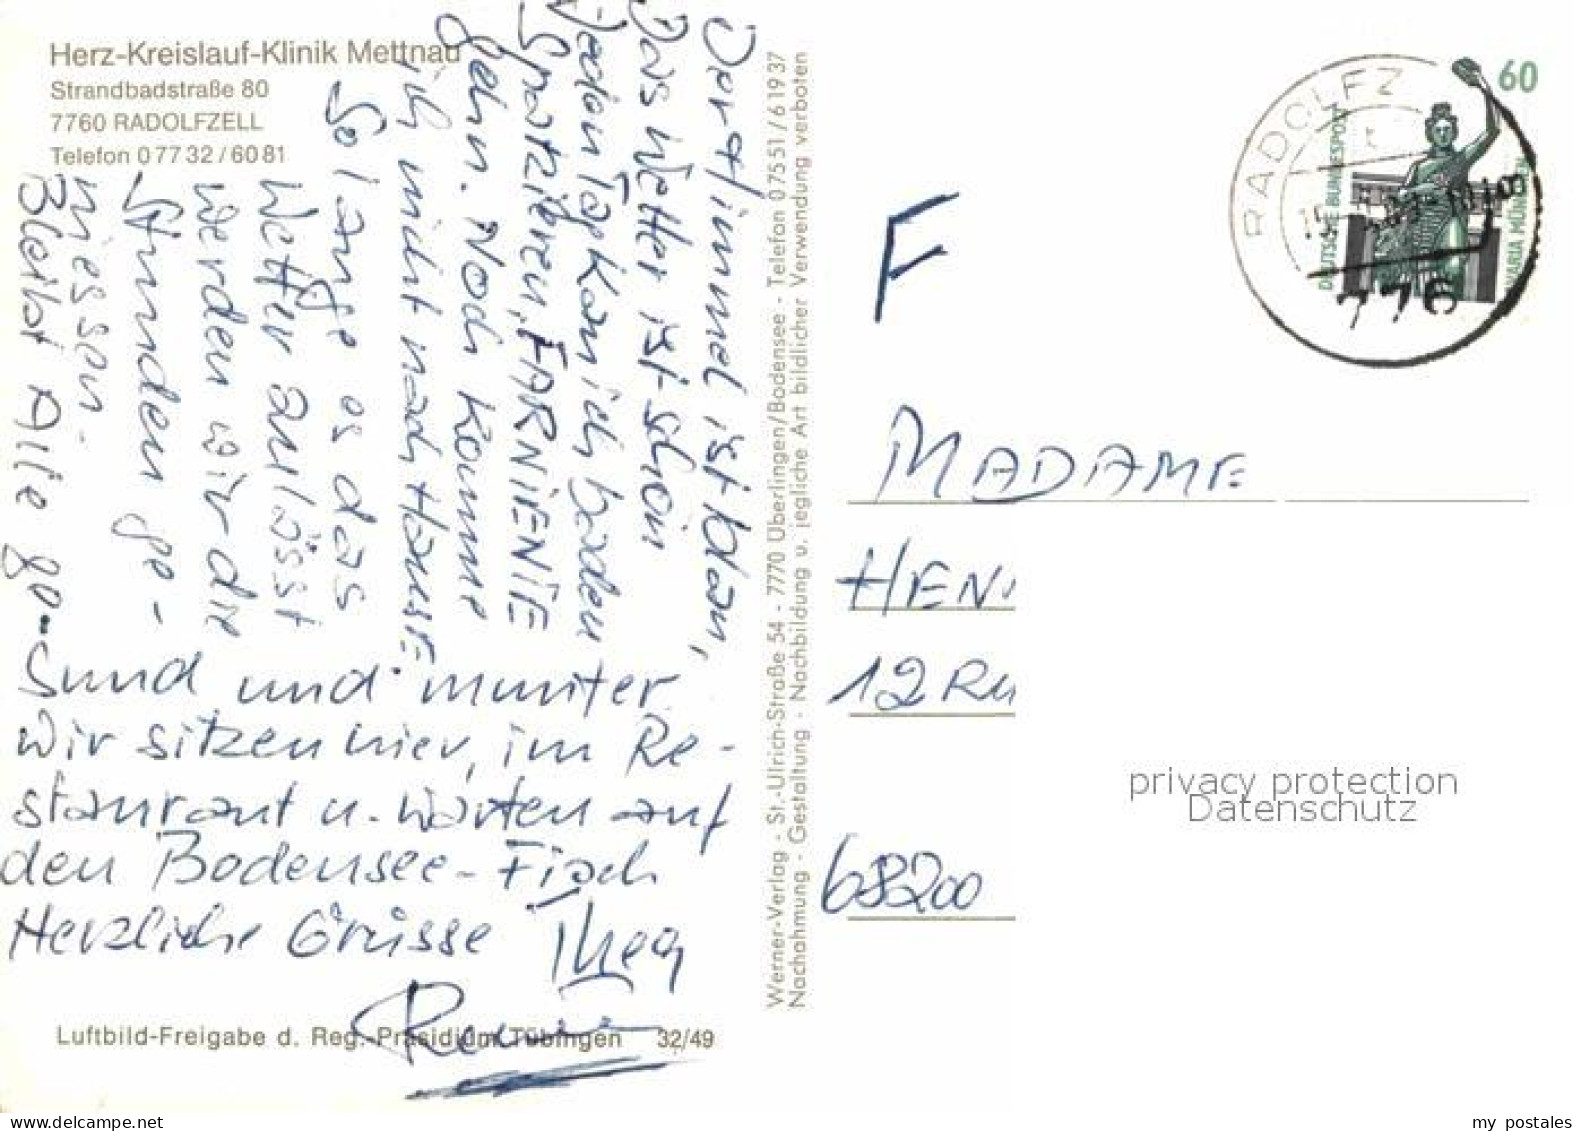 Herz-Kreislauf-Klinik Mettnau
Strandbadstraße 80
7760 RADOLFZELL
Telefon 0 77 32 / 60 81
Der Himmel ist blau,
Das Wetter ist schön
Jeden Tag kan ich baden
Spatzieren, FARNIENTE
gehn. Noch komme
ich nicht nach Hause.
So lange es das
Wetter zulässt
werden wir die
Stunden ge-
niessen.
Bleibt Alle ge-
sund und munter.
Wir sitzen hier, im Re-
staurant u. warten auf
den Bodensee-Fisch
Herzliche Grüsse Thea
Luftbild-Freigabe d. Reg.-Präsidium Tübingen 32/49
Werner-Verlag - St.-Ulrich-Straße 54 - 7770 Überlingen/Bodensee - Telefon 0 75 51 / 6 19 37
Nachahmung - Gestaltung - Nachbildung u. jegliche Art bildlicher Verwendung verboten
RADOLFZ
776
60
DEUTSCHE BUNDESPOST
BAVARIA MÜNCHEN
F
MADAME
HEN
12 RU
68200
privacy protection
Datenschutz
delcampe.net
my postales